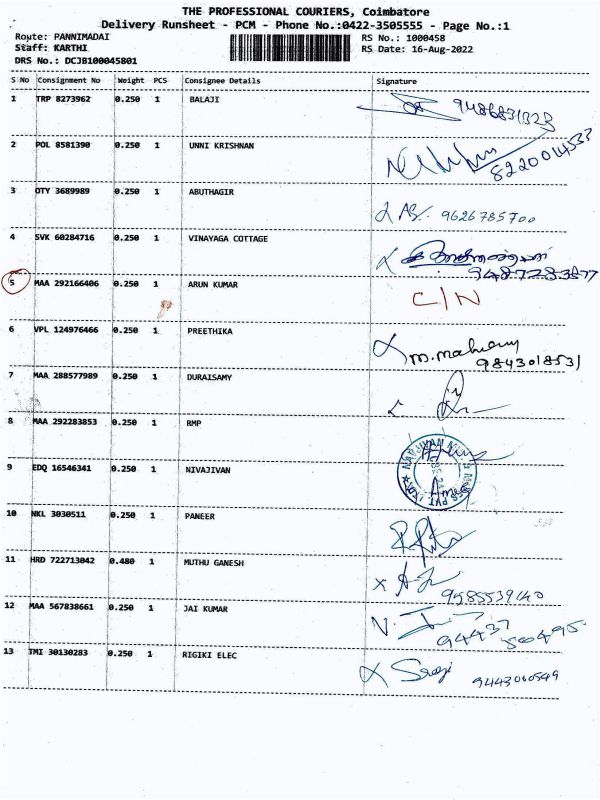 THE PROFESSIONAL COURIERS, Coimbatore
Delivery Runsheet - PCM - Phone No.:0422-3505555 - Page No.:1
Route: PANNIMADAI RS No.: 1000458
Staff: KARTHI RS Date: 16-Aug-2022
DRS No.: DCJB100045801
S No Consignment No Weight PCS Consignee Details Signature
1 TRP 8273962 0.250 1 BALAJI 9486831323
2 POL 8581390 0.250 1 UNNI KRISHNAN 8220014533
3 OTY 3689989 0.250 1 ABUTHAGIR 9626785700
4 SVK 60284716 0.250 1 VINAYAGA COTTAGE 9487283877
5 MAA 292166406 0.250 1 ARUN KUMAR C/N
6 VPL 124976466 0.250 1 PREETHIKA
9843018531
7 MAA 288577989 0.250 1 DURAISAMY
8 MAA 292283853 0.250 1 RMP
9 EDQ 16546341 0.250 1 NIVAJIVAN
10 NKL 3030511 0.250 1 PANEER
11 HRD 722713042 0.480 1 MUTHU GANESH 9585539140
12 MAA 567838661 0.250 1 JAI KUMAR 94437
13 TMI 30130283 0.250 1 RIGIKI ELEC